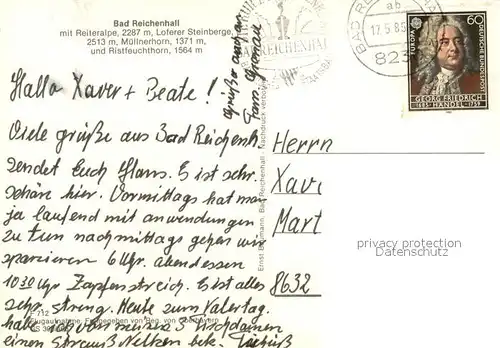 Bad Reichenhall
mit Reiteralpe, 2287 m, Loferer Steinberge,
2513 m, Müllnerhorn, 1371 m,
und Ristfeuchthorn, 1564 m
BAD REICHENHALL
ab
17.5.85
823
EUROPA CEPT
60
DEUTSCHE BUNDESPOST
GEORG FRIEDRICH
HÄNDEL
1685-1759
Grüße an
Fam.
Hallo Xaver + Beate!
Viele grüße aus Bad Reichenh.
sendet Euch Hans. Es ist sehr
schön hier. Vormittags hat man
ja laufend mit anwendungen
zu tun nachmittags gehen wir
spazieren 6 Uhr. abendessen
1030 Uhr Zapfenstreich. Es ist alles
sehr streng. Heute zum Vatertag
habe ich von meine 3 Tischdamen
einen Strauß Nelken bek.
Herrn
Xav
Mart
8632
Ernst Baumann, Bad Reichenhall, Nachdruck
712
Flugaufnahme, Freigegeben von Reg. von Oberbayern
privacy protection
Datenschutz